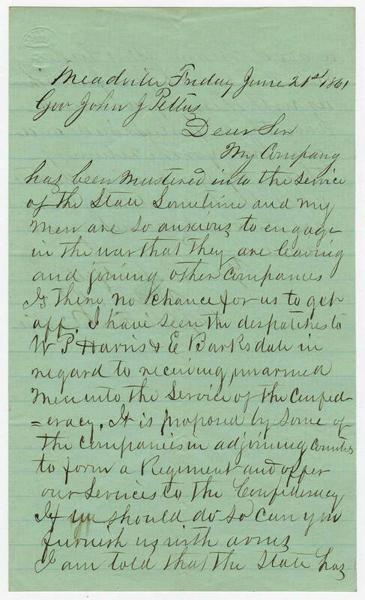 Meadville Friday June 21st 1861
Gov John J Pettus
Dear Sir
My Company
has been mustered into the service
of the State sometime and my
men are so anxious to engage
in the war that they are leaving
and joining other companies
Is there no chance for us to get
off. I have seen the despatches to
W P Harris & E Barksdale in
regard to receiving unarmed
men into the service of the Confed
=eracy. It is proposed by some of
the companies in adjoining Counties
to form a Regiment and offer
our services to the Confederacy
If we should do so can you
furnish us with arms
I am told that the State has